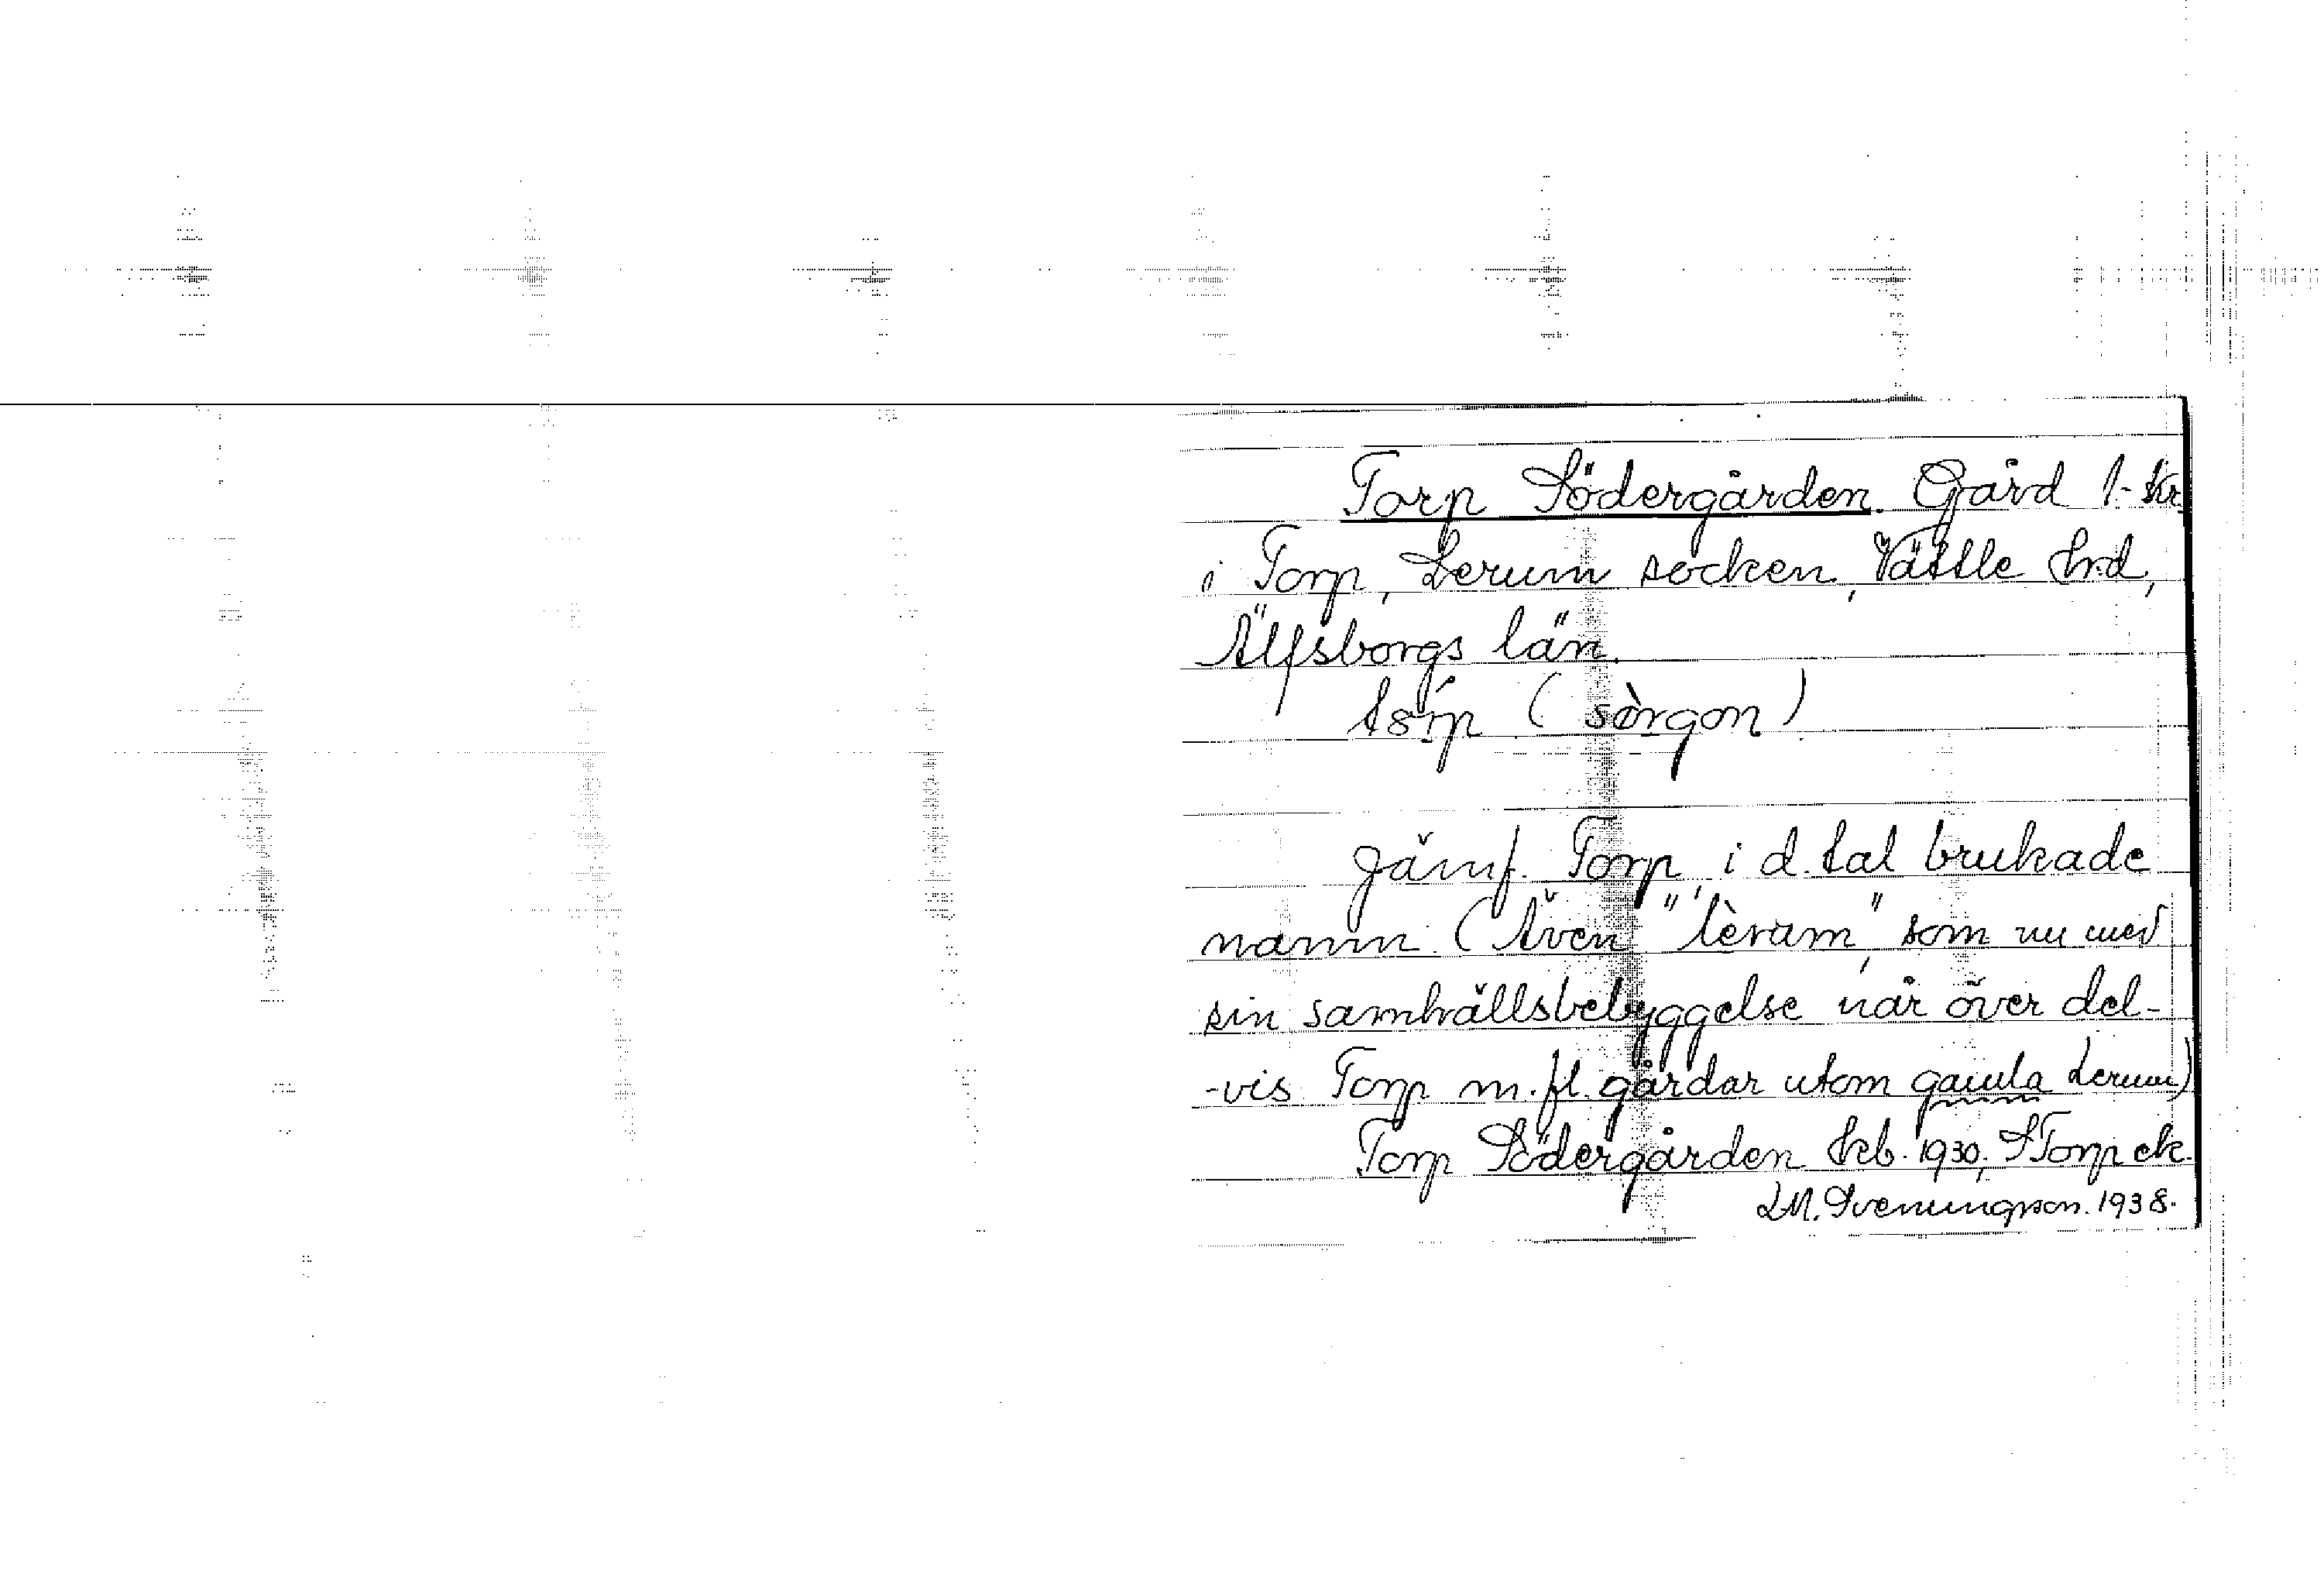 Torp Södergården. Gård 1. kr.
i Torp, Lerum socken, Vättle hrd,
Älfsborgs län.
(sòrgon)
Jämf. Torp, i d. tal brukade
namn. (Även "lèram", som nu med
sin samhällsbebyggelse når över del-
-vis Torp m. fl. gårdar utom gamla Lerum)
Torp Södergården Jeb. 1930; STorp ek.
LM. Svenungson. 1938.